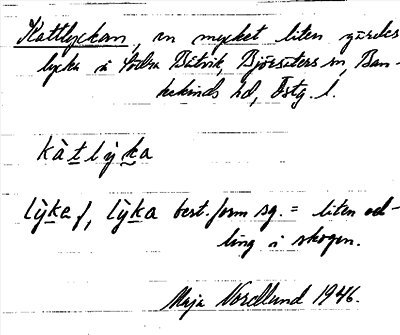 Kattlyckan, en mycket liten gärdes-
lycka i Södra Båtvik, Björsäters sn, Ban-
kekinds hd, Östg. l.
kàtlỳka
lỳka f, lỳka best. form sg. = liten od-
ling i skogen.
Maja Nordlund 1946.